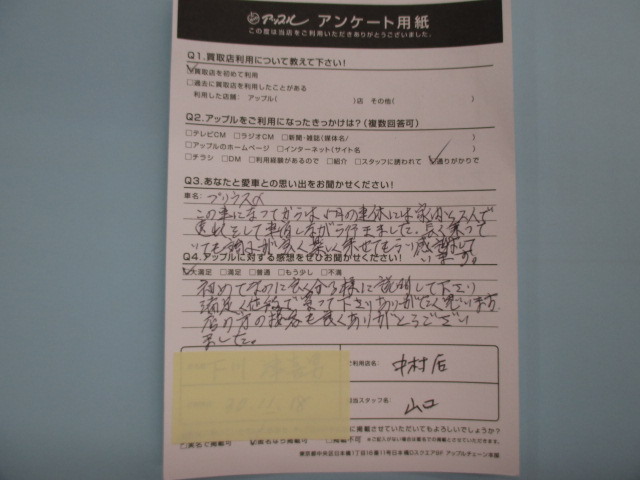 アップル アンケート用紙
この度は当店をご利用いただきありがとうございました。
Q1.買取店利用について教えて下さい!
□買取店を初めて利用
□過去に買取店を利用したことがある
利用した店舗: アップル( )店 その他( )
Q2.アップルをご利用になったきっかけは?(複数回答可)
□テレビCM □ラジオCM □新聞・雑誌(媒体名/ )
□アップルのホームページ □インターネット(サイト名 )
□チラシ □DM □利用経験があるので □紹介 □スタッフに誘われて □通りがかりで
Q3.あなたと愛車との思い出をお聞かせください!
車名: プリウスα
この車になってからは
して車泊しながら行きました。長く乗って
いても 良く楽しく乗せてもらい感謝して
います。
Q4.アップルに対する感想をぜひお聞かせください!
□大満足 □満足 □普通 □もう少し □不満
初めてなのに良く分る様に説明して下さり
満足く 買って下さりありがたく思います
店の方の接客も良くありがとうござい
ました。
ご利用店名: 中村店
担当スタッフ名: 山口
に掲載させていただいてもよろしいでしょうか?
□実名で掲載可 □匿名なら掲載可 □掲載不可 ※ご記入がない場合は匿名での掲載とさせていただきます。
東京都中央区日本橋1丁目16番11号日本橋Dスクエア9F アップルチェーン本部